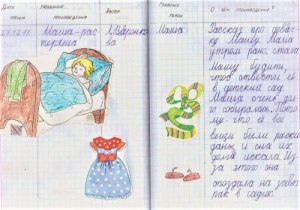 Дата чтения
Название произведения
Автор
Главные герои
О чём произведение?
Маша-растеряша
Маша
Рассказ про девочку Машу. Мама
утром рано стала
Машу будить,
чтоб отвести её
в детский сад.
Маша очень долго
собиралась. Потому
что её все
вещи были раски
даны, и она их
долго искала. Из
за этого она
опоздала на завт
рак в садик.